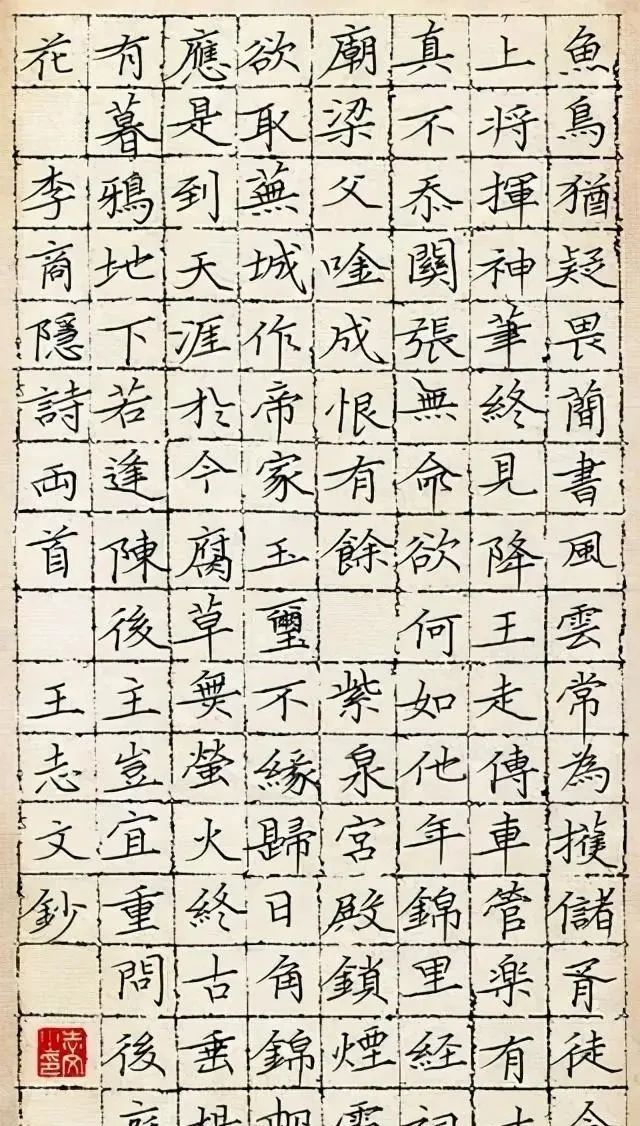 魚鳥猶疑畏簡書風雲常為擭儲胥徒
上將揮神筆終見降王走傳車管樂有
真不忝關張無命欲何如他年錦里經
廟梁父唫成恨有餘 紫泉宮殿鎖煙
欲取蕪城作帝家玉璽不緣歸日角錦
應是到天涯於今腐草無螢火終古垂
有暮鴉地下若逢陳後主豈宜重問後
花 李商隱詩兩首 王志文鈔